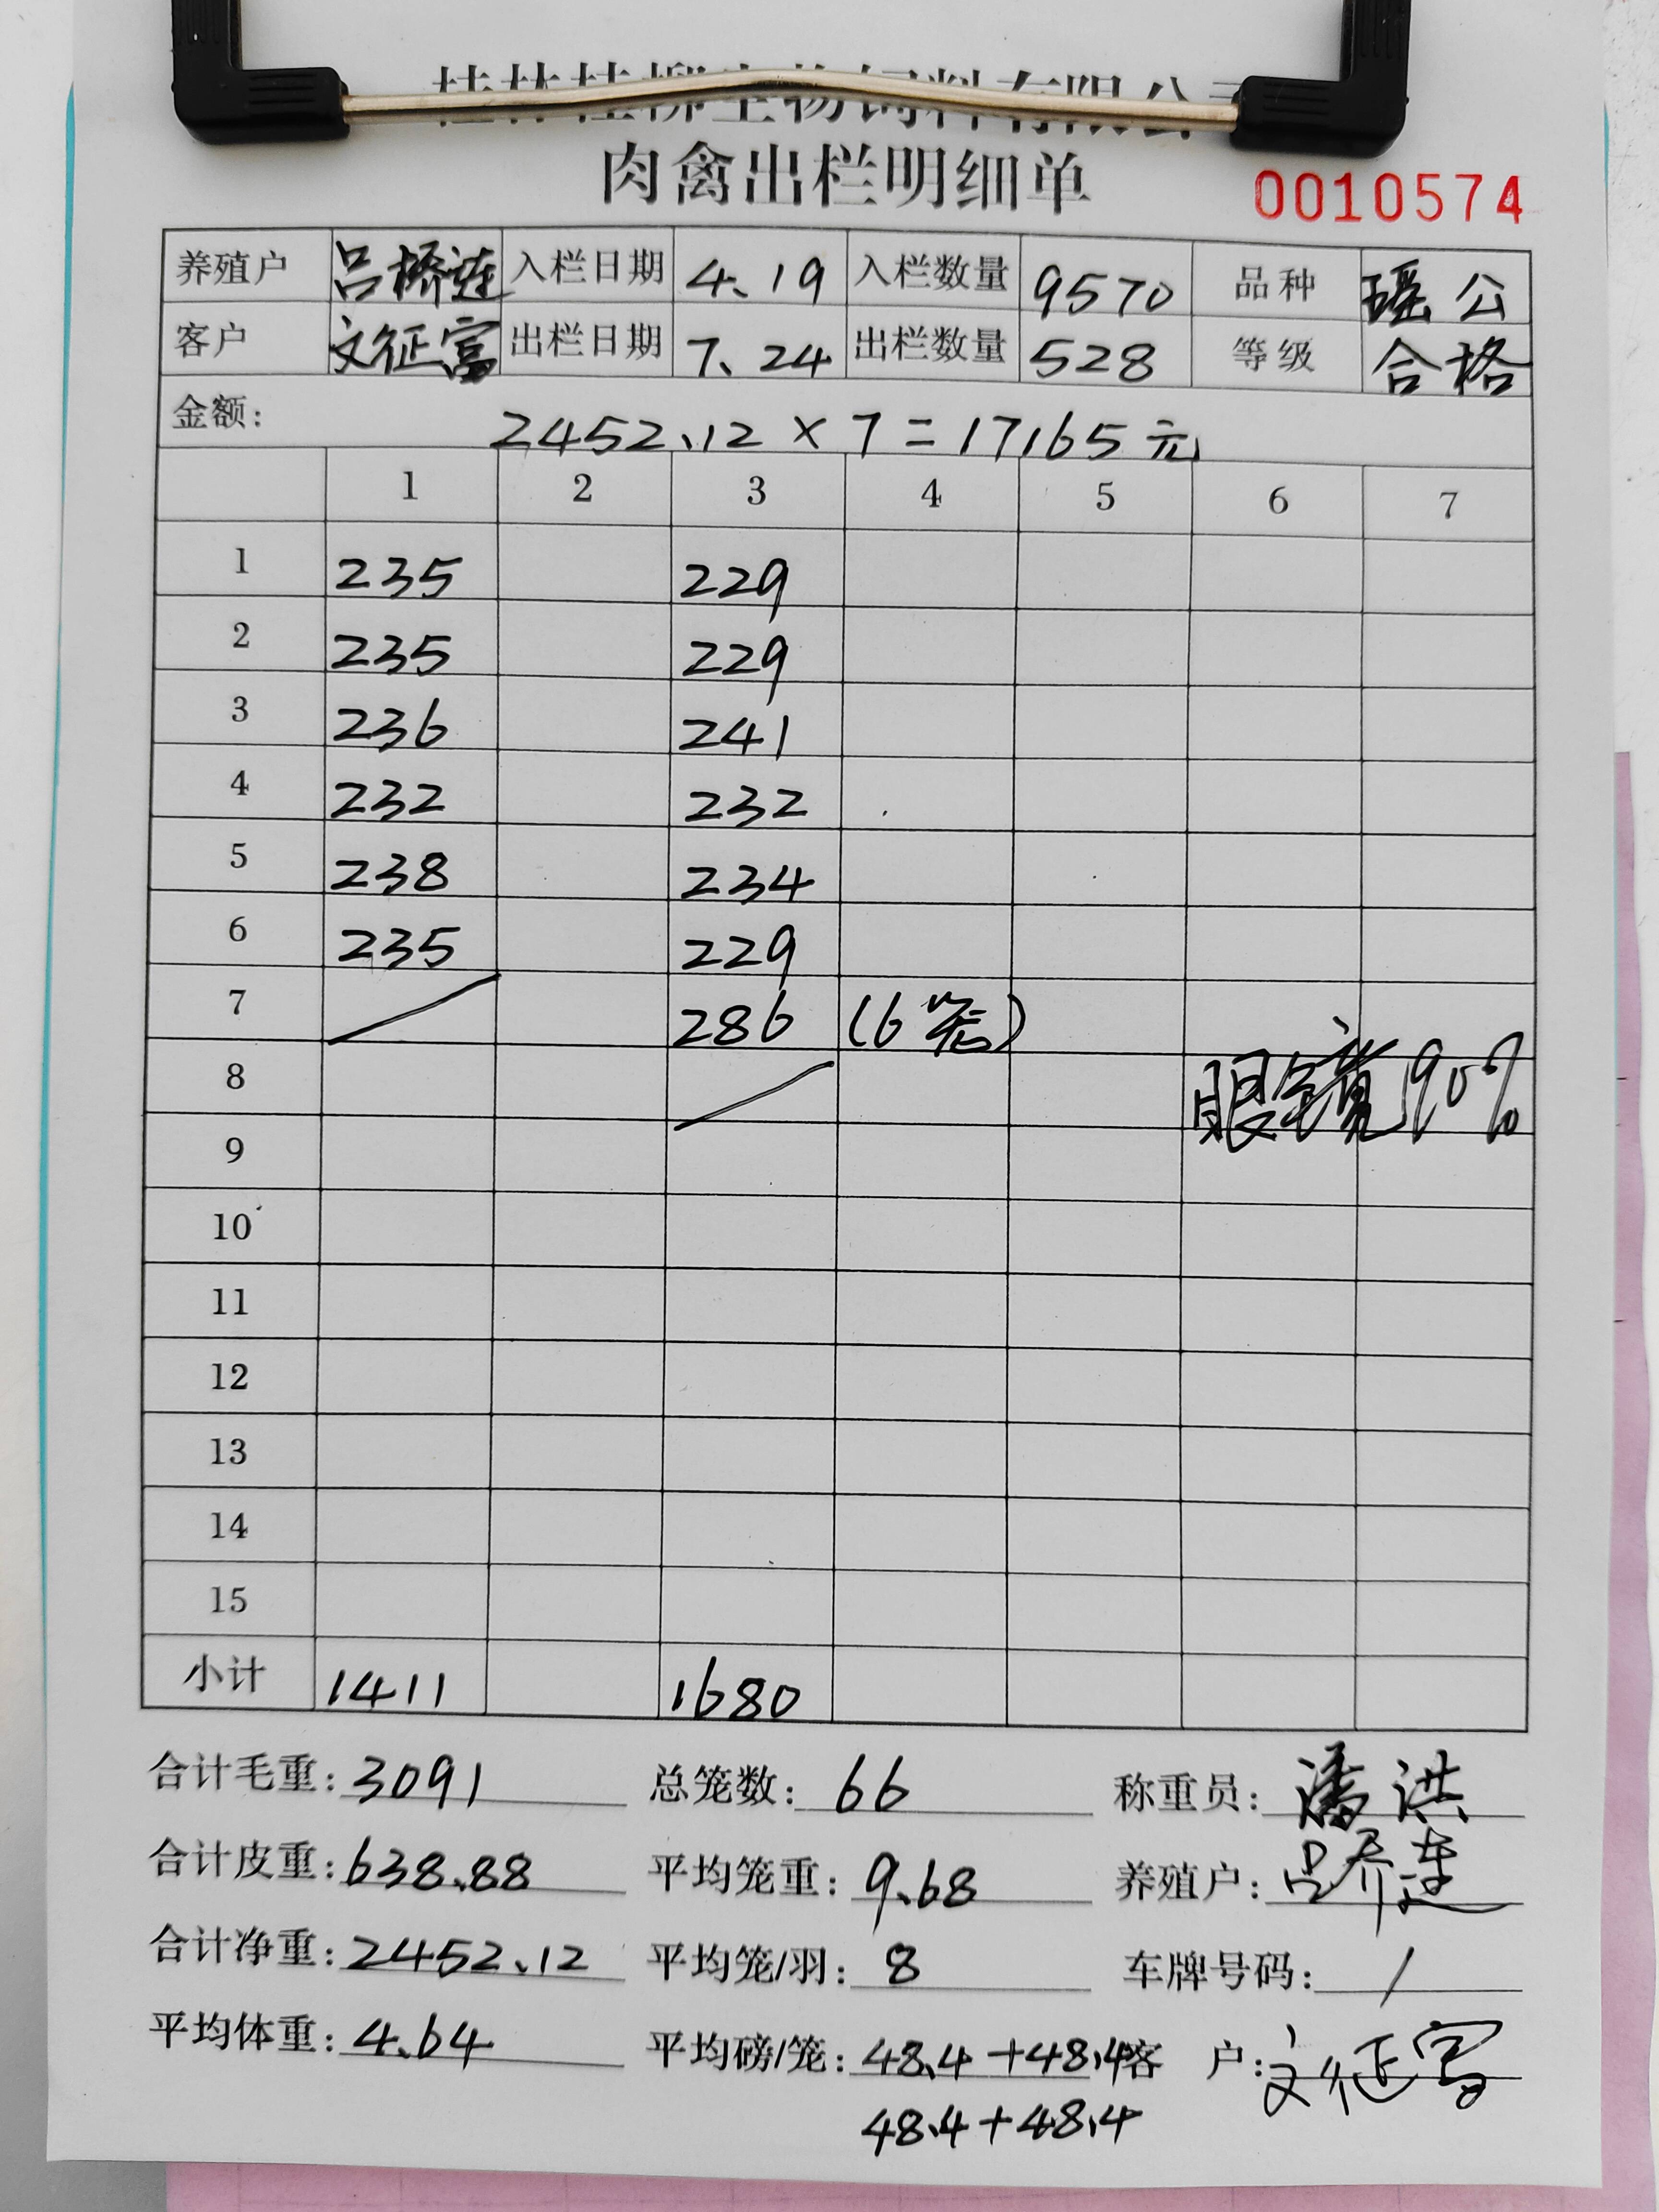 桂林桂柳生物饲料有限公司
肉禽出栏明细单 0010574
养殖户 吕桥连 入栏日期 4.19 入栏数量 9570 品种 瑶公
客户 文征富 出栏日期 7.24 出栏数量 528 等级 合格
金额: 2452.12×7=17165元
1 2 3 4 5 6 7
1 235 229
2 235 229
3 236 241
4 232 232
5 238 234
6 235 229
7 286 (6笼)
8 眼镜90%
9
10
11
12
13
14
15
小计 1411 1680
合计毛重: 3091 总笼数: 66 称重员: 潘洪
合计皮重: 638.88 平均笼重: 9.68 养殖户: 吕乔连
合计净重: 2452.12 平均笼/羽: 8 车牌号码: /
平均体重: 4.64 平均磅/笼: 48.4+48.4 客户: 文征富
48.4+48.4